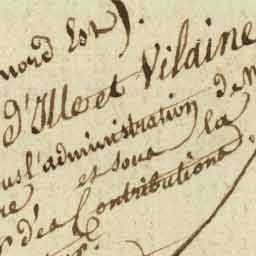 nord Est).
d'Ille et Vilaine
l'administration de
et sous la
des Contributions